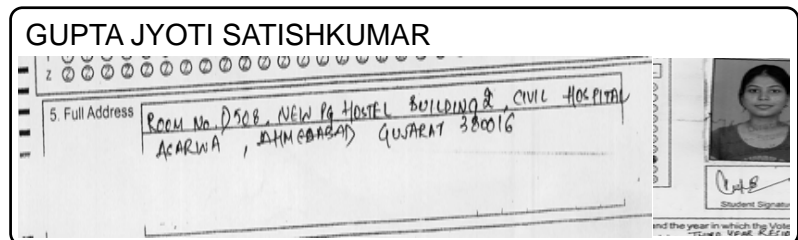 GUPTA JYOTI SATISHKUMAR
Z
5. Full Address
ROOM No. D508, NEW PG HOSTEL BUILDING 2, CIVIL HOSPITAL
ASARWA, AHMEDABAD GUJARAT 380016
Student Signatu
nd the year in which the Vote
THIRD YEAR RESID